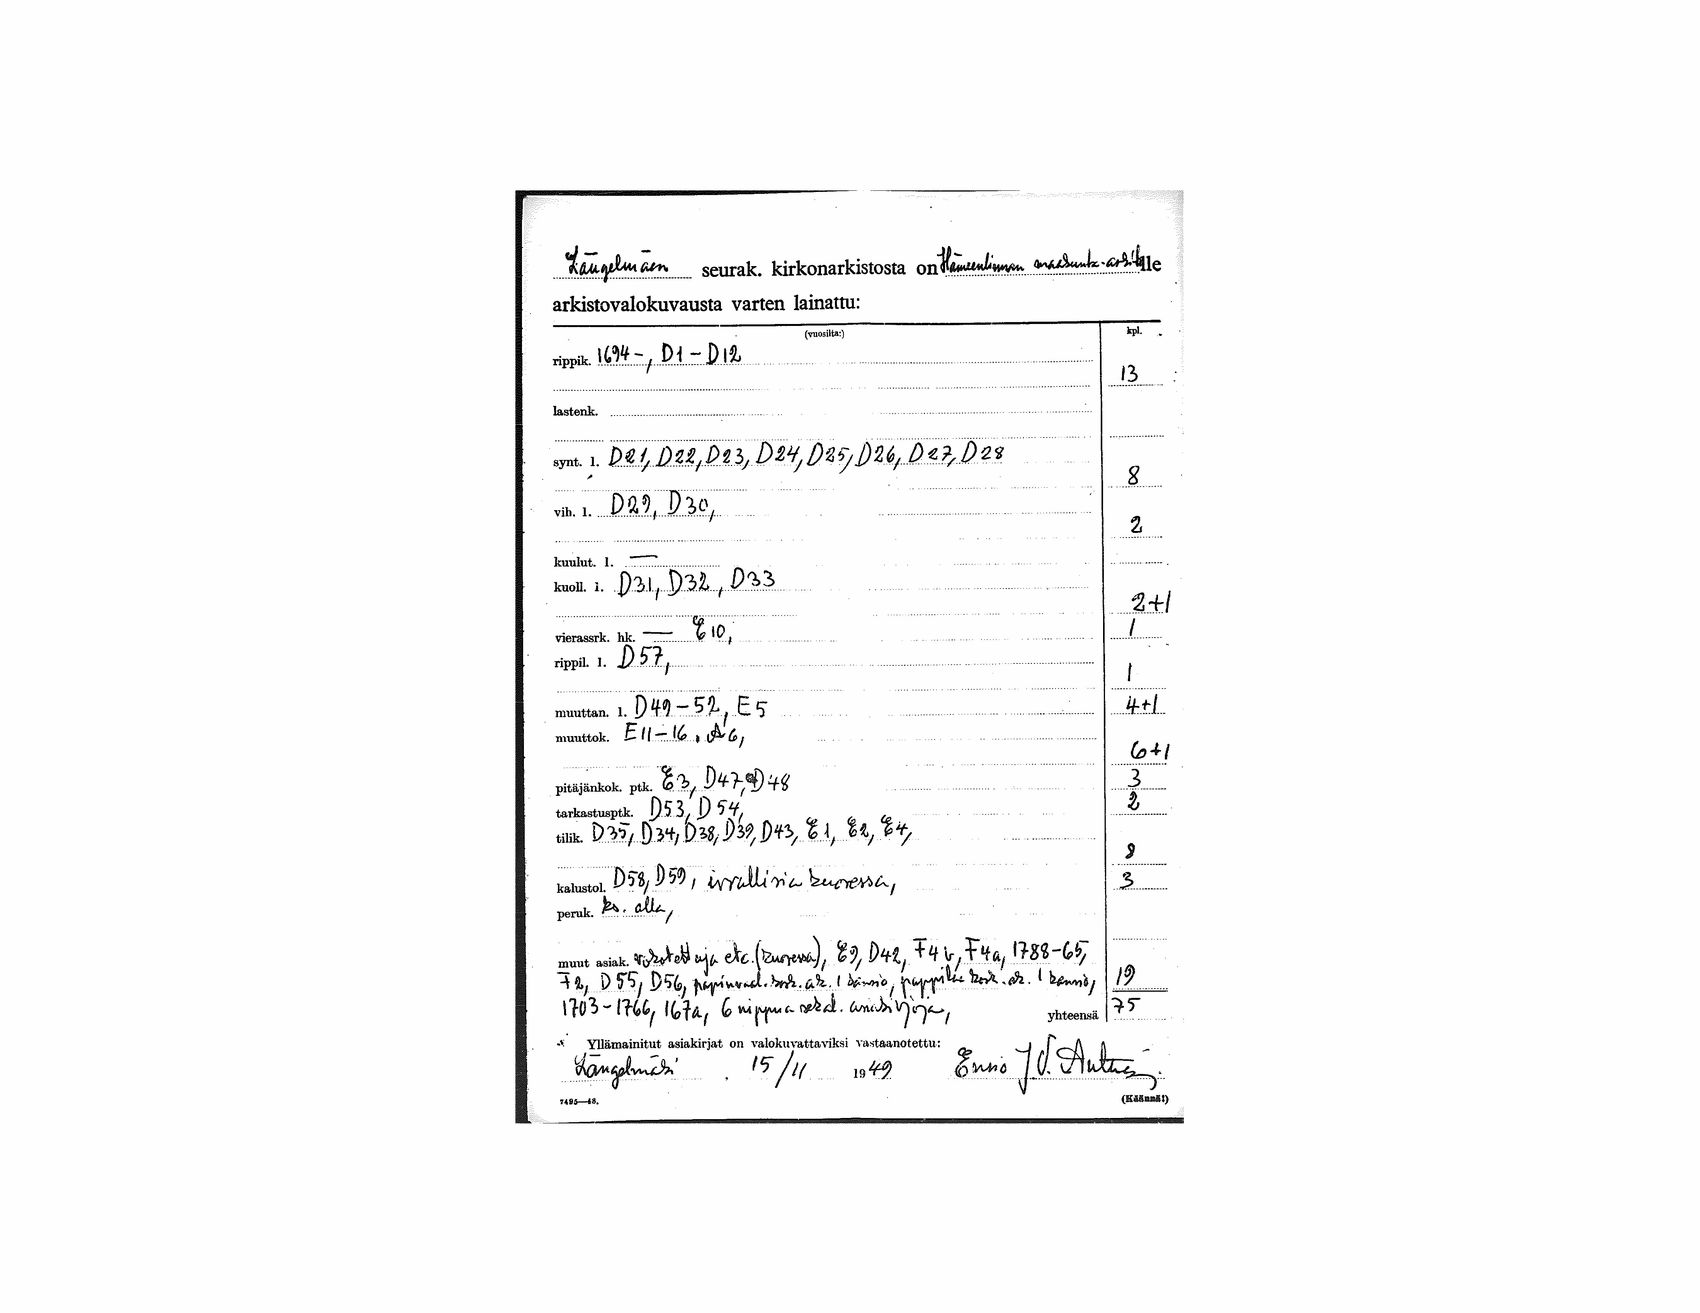 Längelmäen seurak. kirkonarkistosta on Hämeenlinnan maakunta-arkistolle
arkistovalokuvausta varten lainattu:
(vuosilta:) kpl.
rippik. 1694-, D1 - D12 13
lastenk.
synt. l. D21, D22, D23, D24, D25, D26, D27, D28 8
vih. l. D29, D30, 2
kuulut. l. —
kuoll. l. D31, D32, D33 2+1
vierassrk. hk. — E10, 1
rippil. l. D57, 1
muuttan. l. D49-52, E5 4+1
muuttok. E11-16, A6, 6+1
pitäjänkok. ptk. E3, D47, D48 3
tarkastusptk. D53, D54, 2
tilik. D35, D34, D38, D39, D43, E1, E2, E4, 8
kalustol. D58, D59, irrallisia kuoressa, 3
peruk. ks. alla,
muut asiak. rokotettuja etc. (kuoressa), E9, D42, F4b, F4a, 1788-65,
F2, D55, D56, 1 kansio, pappilan 1 kansio, 19
1703-1766, 167a, 6 nippua sekal. asiakirjoja, yhteensä 75
Yllämainitut asiakirjat on valokuvattaviksi vastaanotettu:
Längelmäki 15/11 1949 Ensio J.V.
7495—48. (Käännä!)